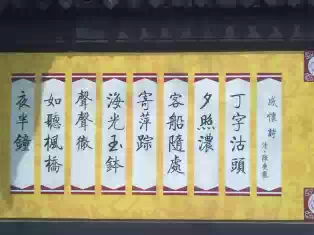 感懷詩
清·陳永氣
丁字沽頭
夕照濃
客船隨處
寄萍踪
海光玉鉢
聲聲徹
如聽楓橋
夜半鐘